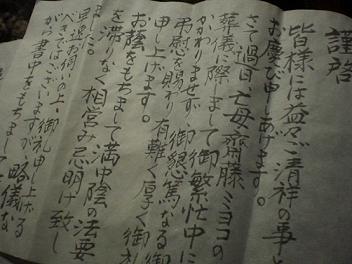 謹啓
皆様には益々ご清祥の事と
お慶び申しあげます。
さて過日 亡母 齋藤ミヨコの
葬儀に際しまして御繁忙中に
かかわりませず御懇篤なる御
弔慰を賜わり有難く厚く御礼
申し上げます。
お蔭をもちまして満中陰の法要
を滞りなく相営み忌明け致し
ました。
早速お伺いの上、御礼申し上げる
べきではございますが略儀な
がら書中をもちまして